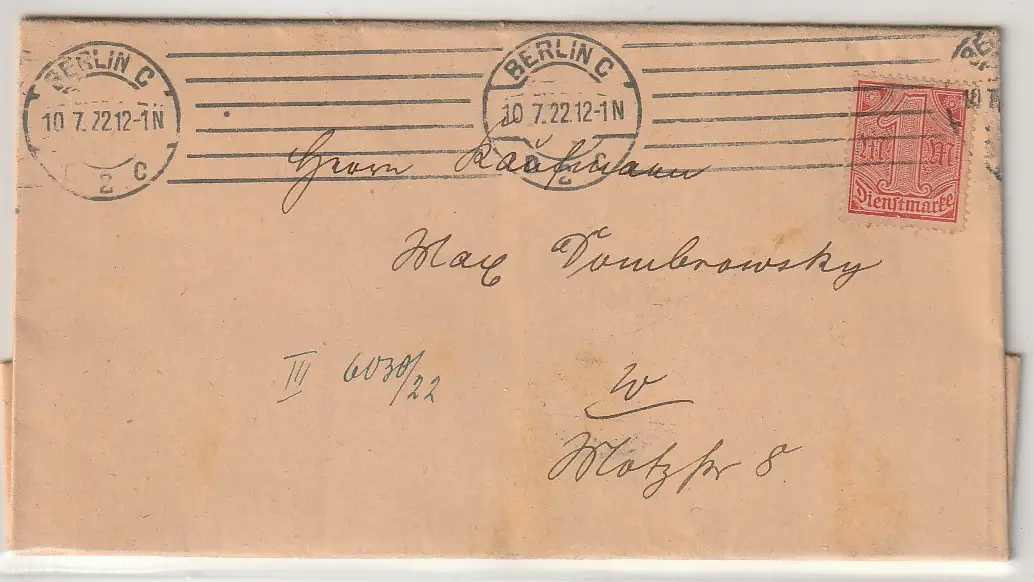 BERLIN C
10.7.22 12-1N
2 C
BERLIN C
10.7.22 12-1N
2 C
1
M M
Dienstmarke
Herrn Kaufmann
Max Dombrowsky
III 6030/22
W
Motzstr 8